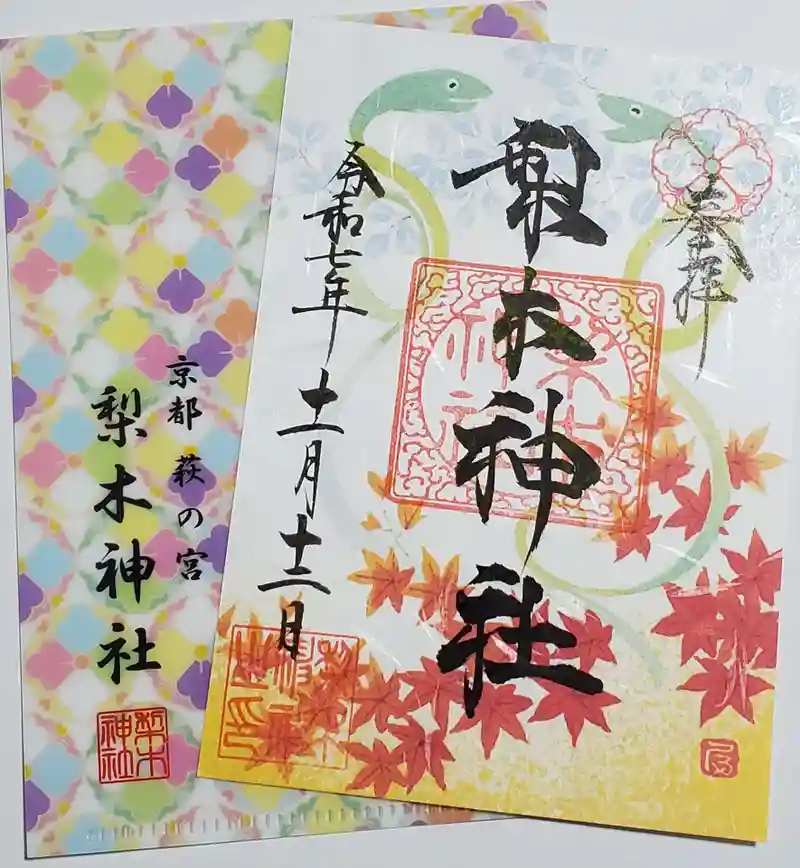 奉拝
梨木神社
令和七年十一月十二日
京都 萩の宮
梨木神社
梨木
神社